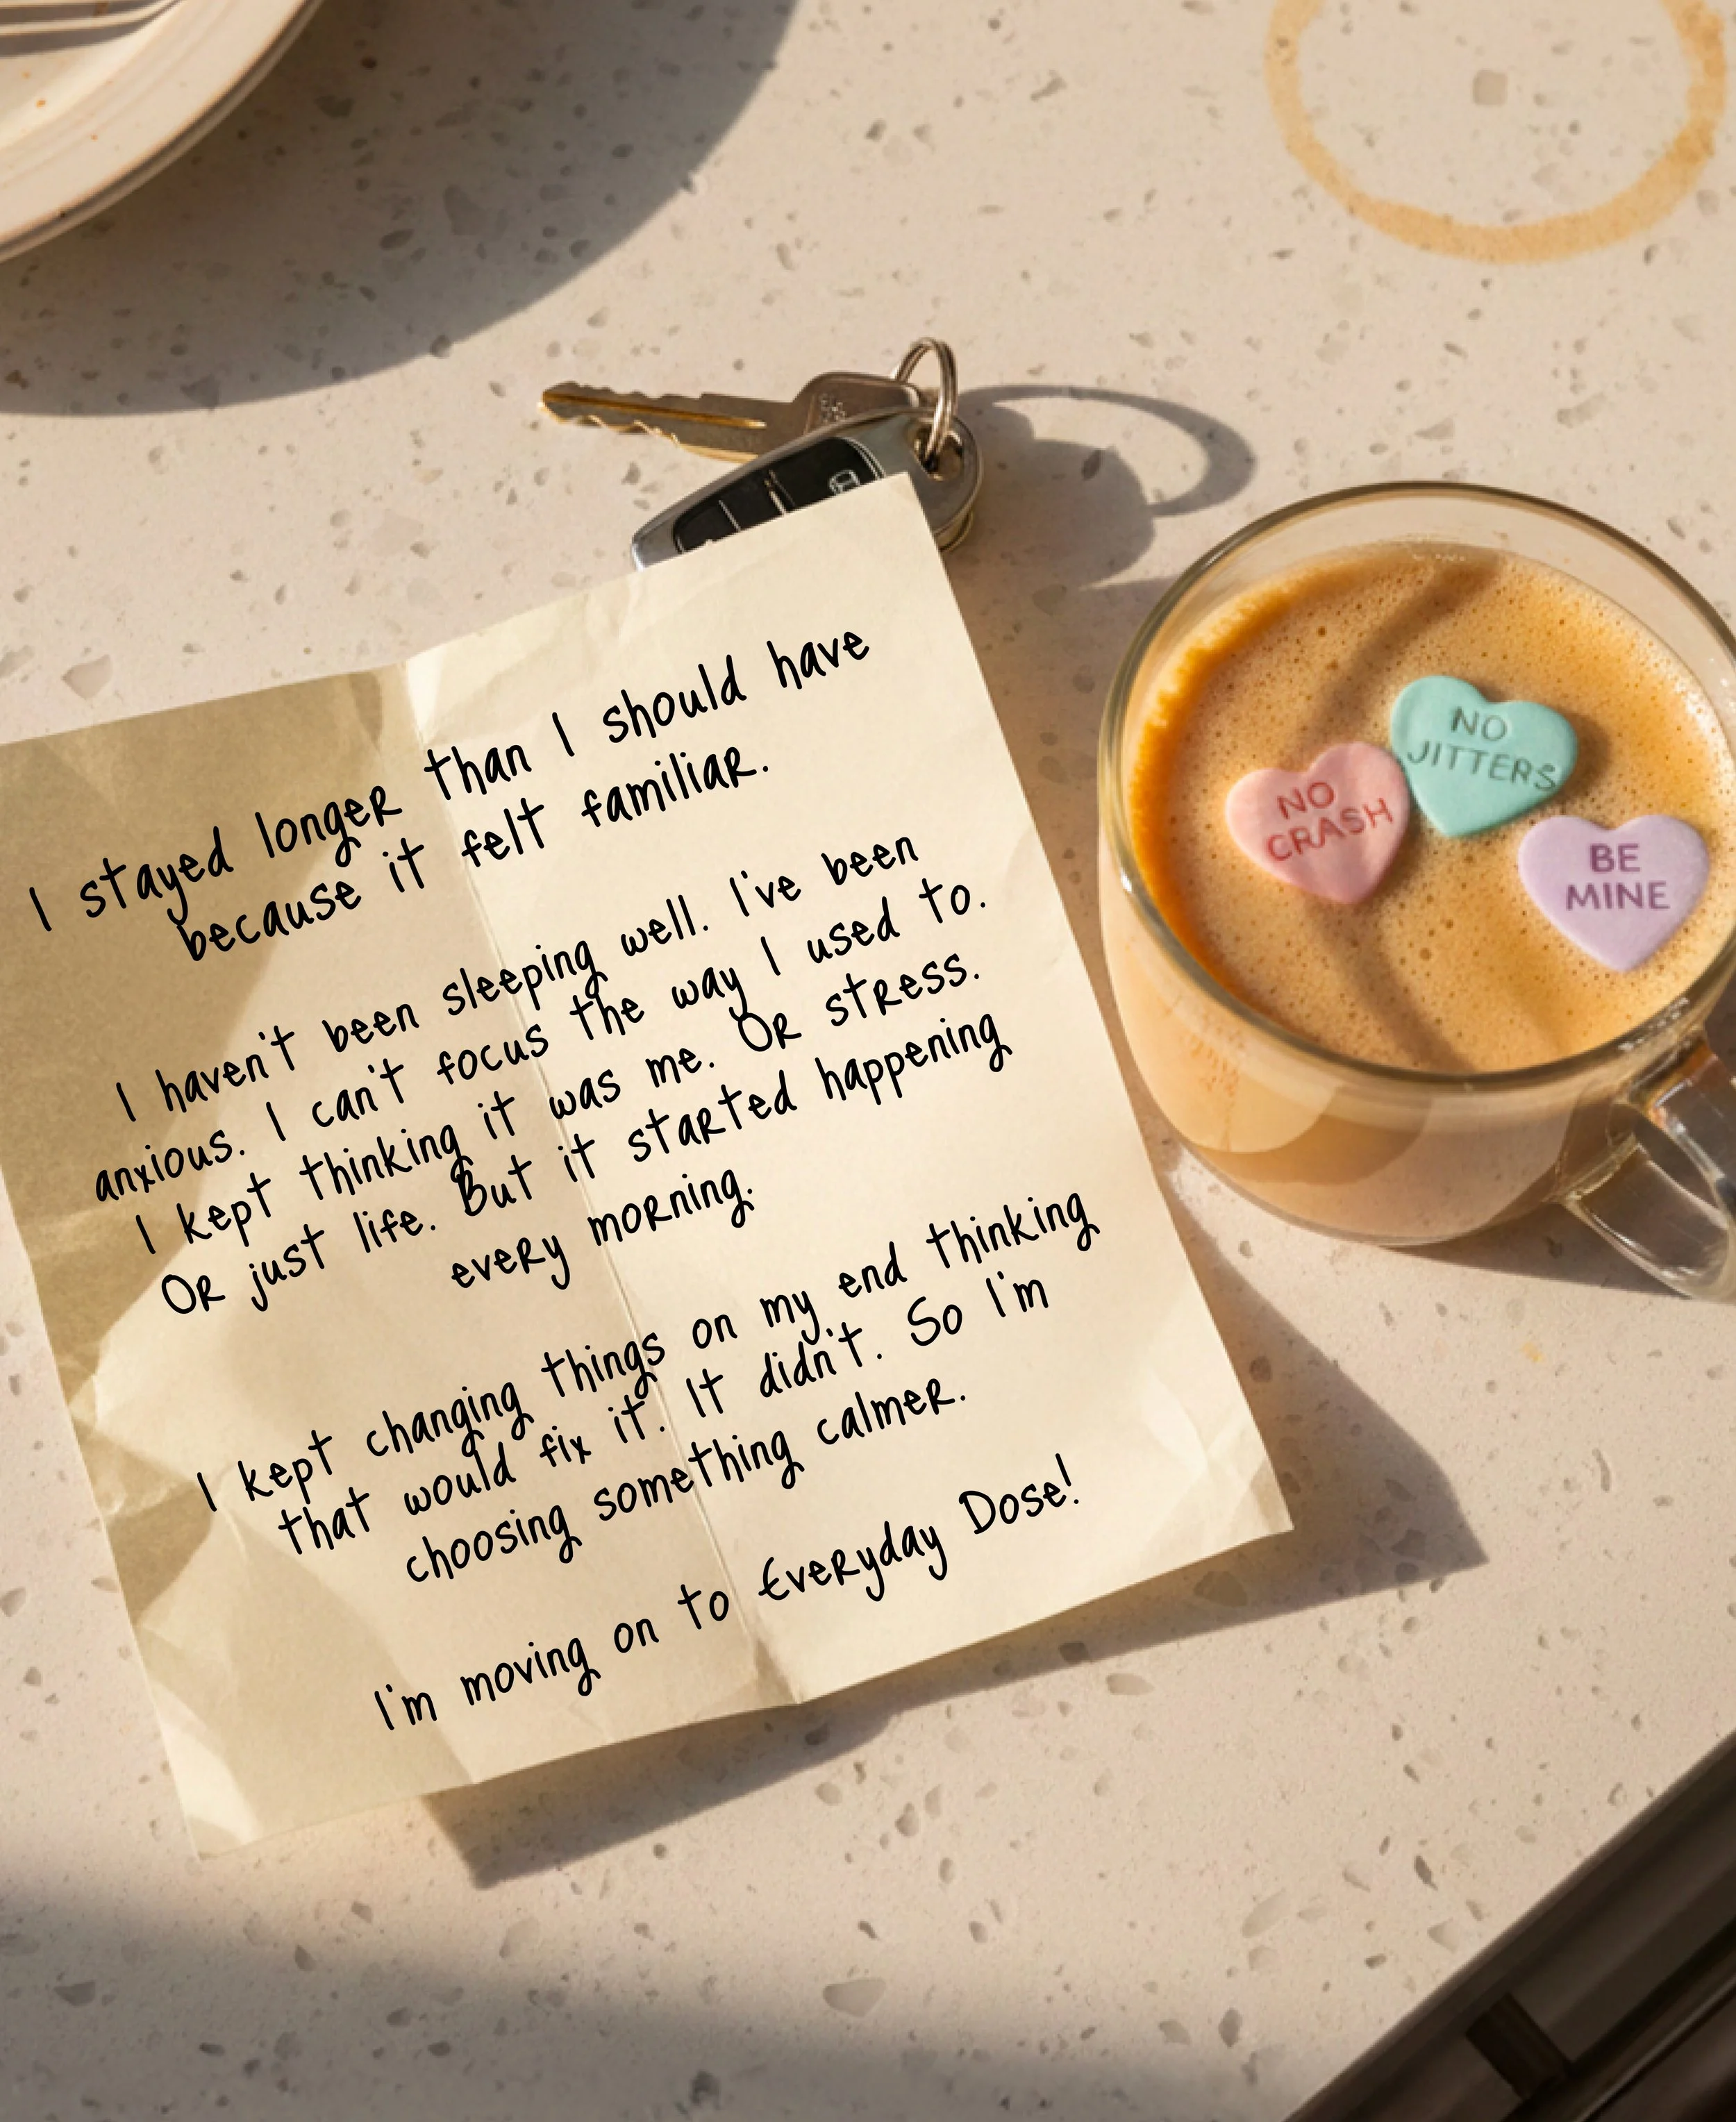 I stayed longer than I should have
because it felt familiar.
I haven't been sleeping well. I've been
anxious. I can't focus the way I used to.
I kept thinking it was me. Or stress.
Or just life. But it started happening
every morning.
I kept changing things on my end thinking
that would fix it. It didn't. So I'm
choosing something calmer.
I'm moving on to Everyday Dose!
NO
CRASH
NO
JITTERS
BE
MINE